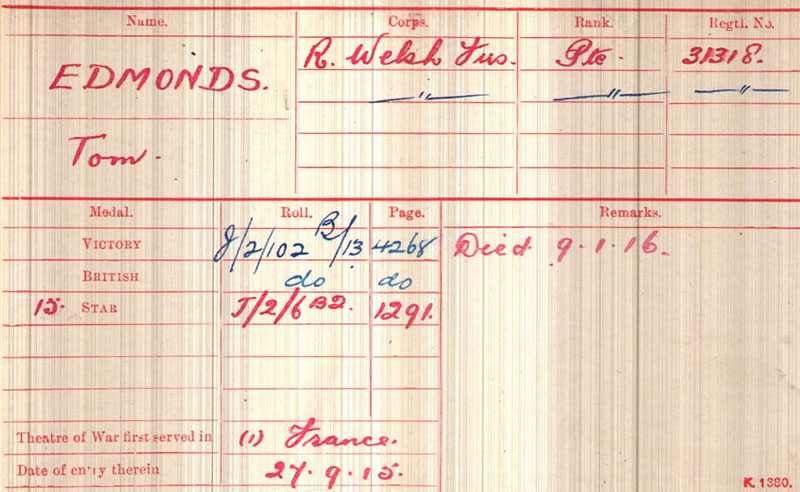 Name. Corps. Rank. Regtl. No.
EDMONDS. R. Welsh Fus. Pte. 31318.
" " "
Tom.
Medal. Roll. Page. Remarks.
VICTORY J/2/102 B/13 4268 Died 9.1.16.
BRITISH do do
15. STAR J/2/6 B2. 1291.
Theatre of War first served in (1) France.
Date of entry therein 27.9.15.
K. 1380.